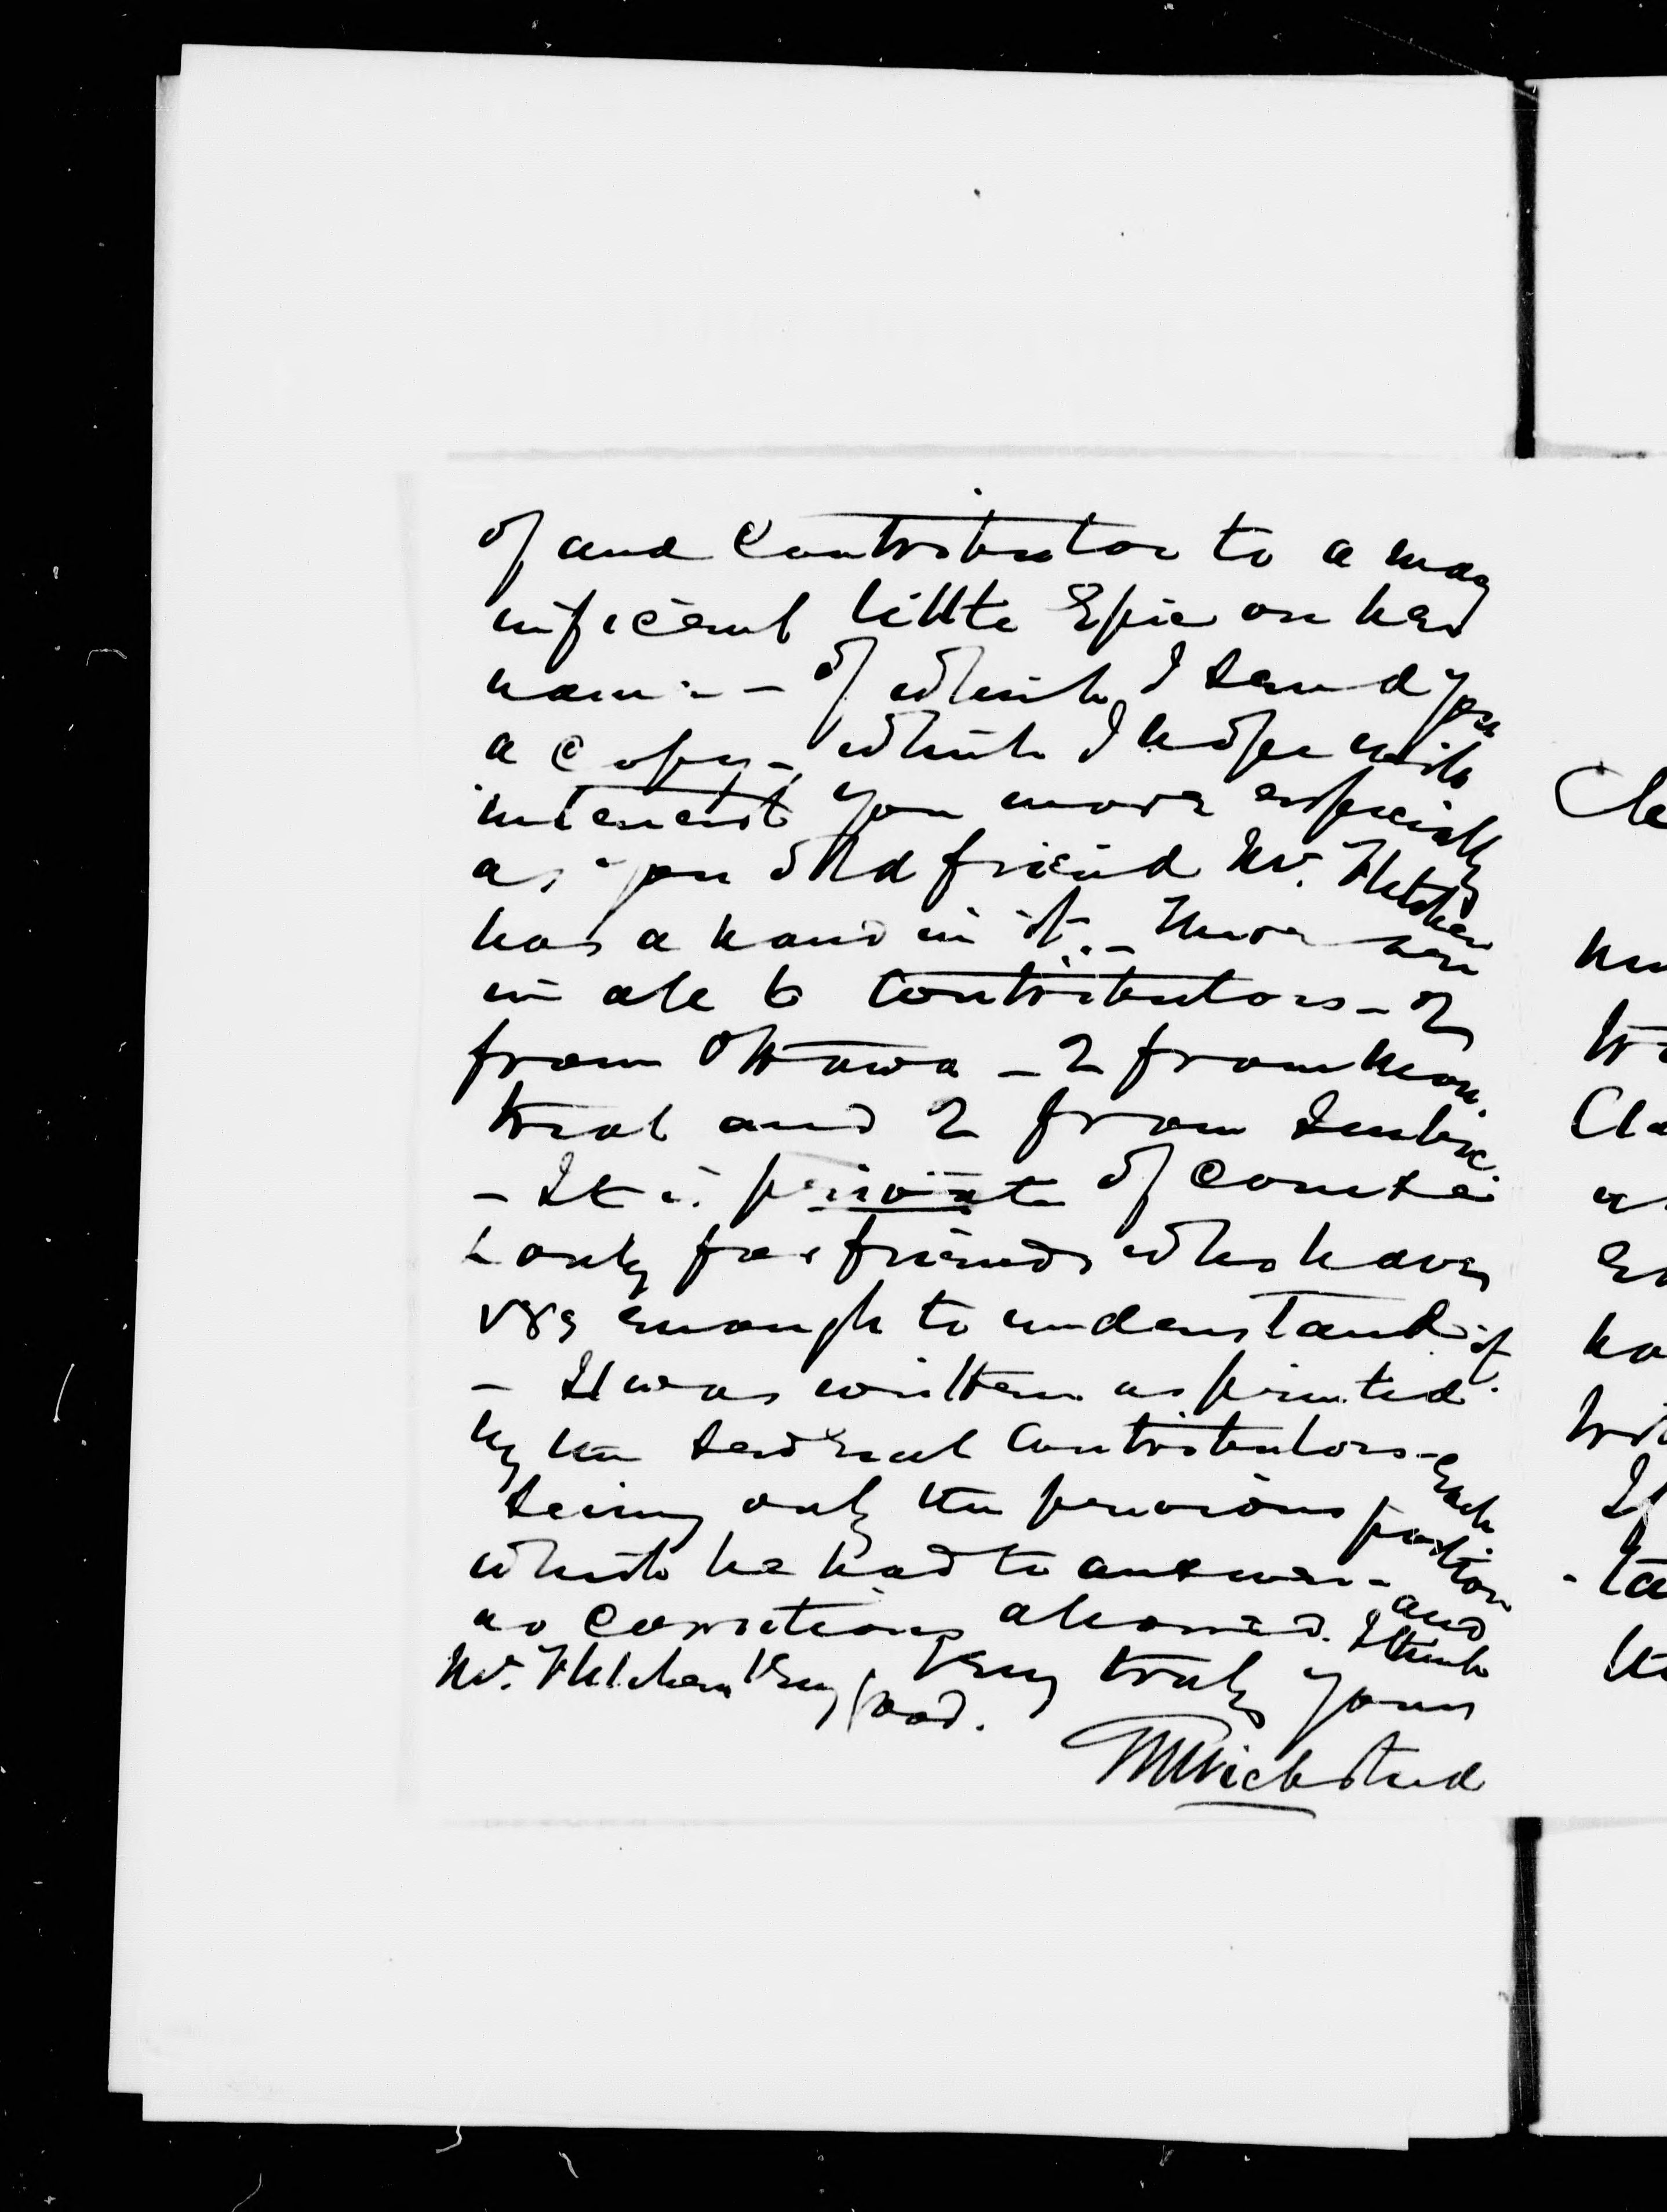 of and Contributor to a mag
nificent little Epic on her
name - of which I send you
a Copy -, which I hope will
interest you more especially
as your old friend Mr. Fletcher
has a hand in it. - There were
in all 6 Contributors - 2
from Ottawa - 2 from Mon-
treal and 2 from Quebec
- It is private of course
& only for friends who have
enough to understand it
- It was written as printed.
by the several Contributors - Each
seeing only the previous portion
which he had to answer - and
no corrections allowed. I think
Mr. Fletcher's Very good. Very truly yours
Wicksteed
Cle
Cla
ha
If